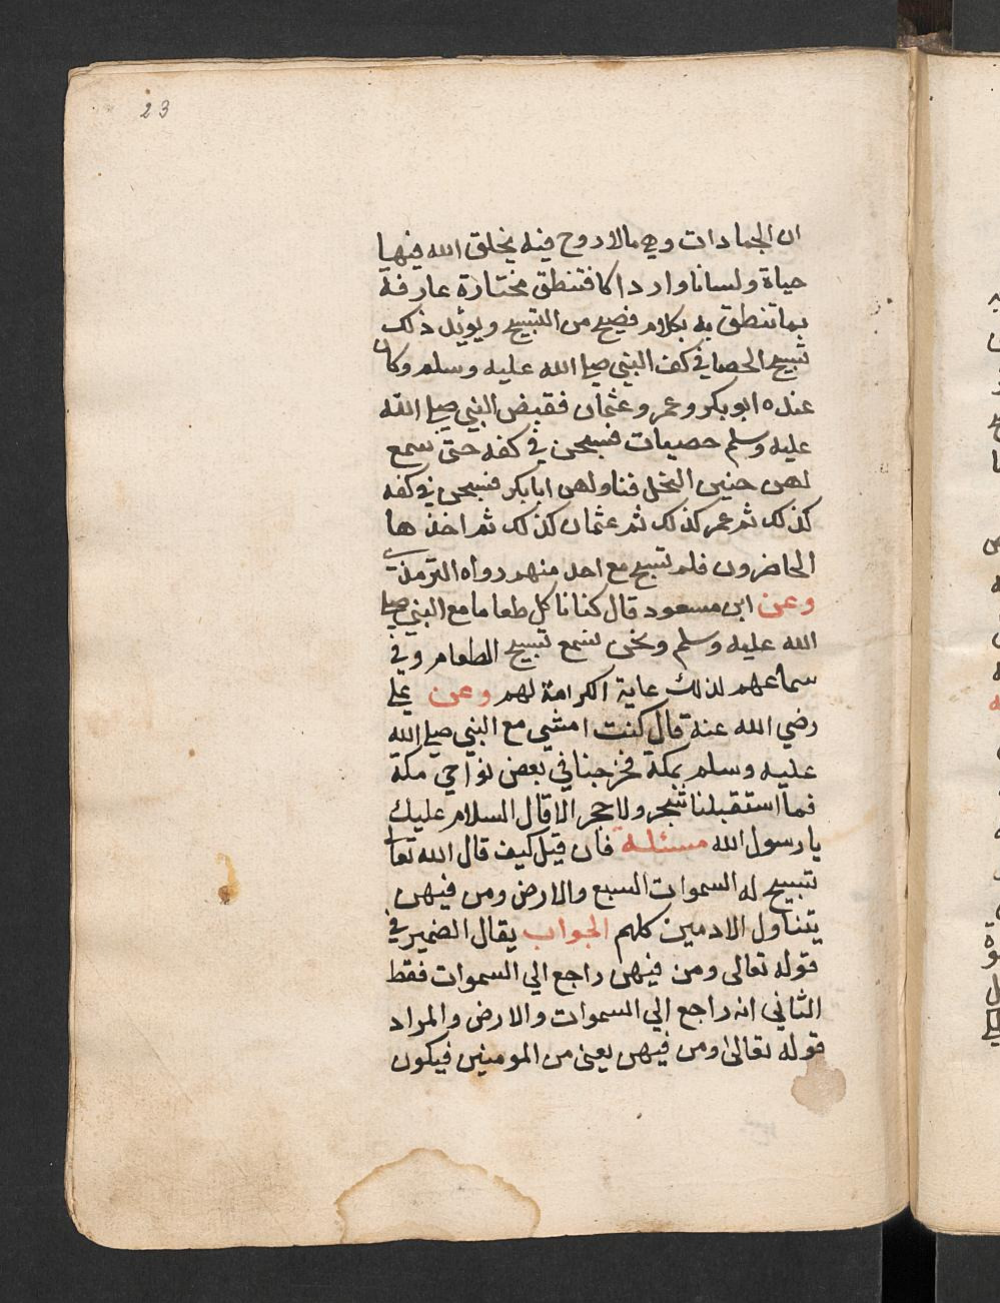 23
ان الجمادات وهي مالا روح فيه يخلق الله فيها
حياة ولسانا وادراكا فتنطق مختارة عارفة
بما تنطق به بكلام فصيح من التسبيح ويويد ذلك
تسبيح الحصا في كف النبي صلي الله عليه وسلم وكان
عنده ابو بكر وعمر وعثمان فقبض النبي صلي الله
عليه وسلم حصيات فسبحن في كفه حتى سمع
لهن حنين النحل فناولهن ابا بكر فسبحن في كفه
كذلك ثم عمر كذلك ثم عثمان كذلك ثم اخذها
الحاضرون فلم تسبح مع احد منهم رواه الترمذي
وعن ابن مسعود قال كنا ناكل طعاما مع النبي صلي
الله عليه وسلم ونحن نسمع تسبيح الطعام وفي
سماعهم لذلك غاية الكرامة لهم وعن علي
رضي الله عنه قال كنت امشي مع النبي صلي الله
عليه وسلم بمكة فخرجنا في بعض نواحي مكة
فما استقبلنا شجر ولا حجر الا قال السلام عليك
يا رسول الله مسئلة فان قيل كيف قال الله تعالى
تسبيح له السموات السبع والارض ومن فيهن
يتناول الادمين كلهم الجواب يقال الضمير في
قوله تعالى ومن فيهن راجع الي السموات فقط
الثاني انه راجع الي السموات والارض والمراد
قوله تعالى ومن فيهن يعني من المومنين فيكون